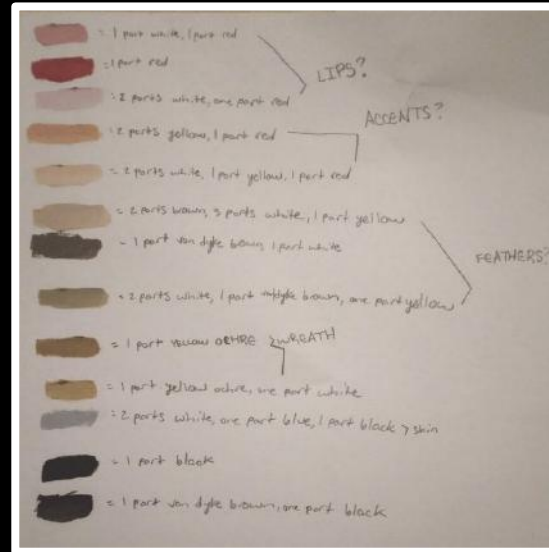 = 1 part white, 1 part red
= 1 part red
LIPS?
= 2 parts white, one part red
ACCENTS?
= 2 parts yellow, 1 part red
= 2 parts white, 1 part yellow, 1 part red
= 2 parts brown, 3 parts white, 1 part yellow
= 1 part van dyke brown, 1 part white
FEATHERS?
= 2 parts white, 1 part brown, one part yellow
= 1 part YELLOW OCHRE WREATH
= 1 part yellow ochre, one part white
= 2 parts white, one part blue, 1 part black > skin
= 1 part black
= 1 part van dyke brown, one part black